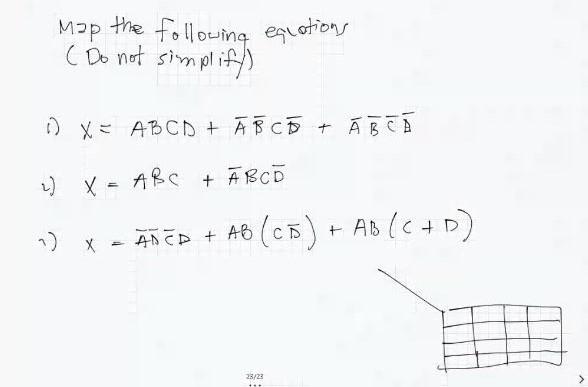 Map the following equations
(Do not simplify)
1) X = ABCD + A̅ B̅ C D̅ + A̅ B̅ C̅ D̅
2) X = ABC + A̅ B C D̅
3) X = A̅ B̅ C̅ D + AB (C D̅) + AB (C + D)
23/23